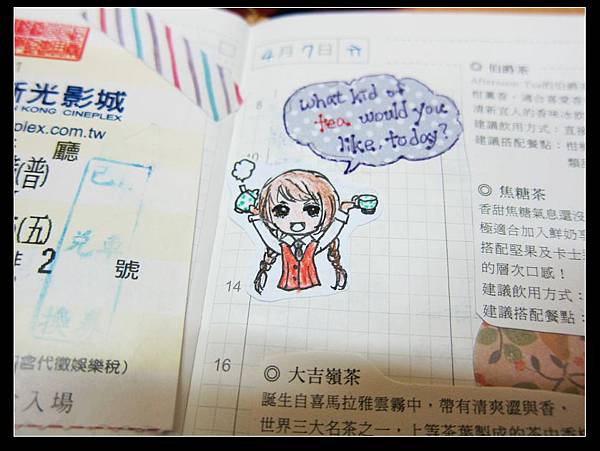 新光影城
KONG CINEPLEX
plex.com.tw
廳
(普)
(五)
2 號
兌
換
代徵娛樂稅)
入場
4月7日
8
What kid of
tea would you
like, today?
14
16
◎ 伯爵茶
Afternoon Tea的伯爵
柑薰香,適合喜愛香
清新宜人的香味冰飲
建議飲用方式:直接
建議搭配餐點:柑
◎ 焦糖茶
香甜焦糖氣息還沒
極適合加入鮮奶享
搭配堅果及卡士
的層次口感!
建議飲用方式:
建議搭配餐點:
◎ 大吉嶺茶
誕生自喜馬拉雅雲霧中,帶有清爽澀與香,
世界三大名茶之一,上等茶葉製成的茶中香